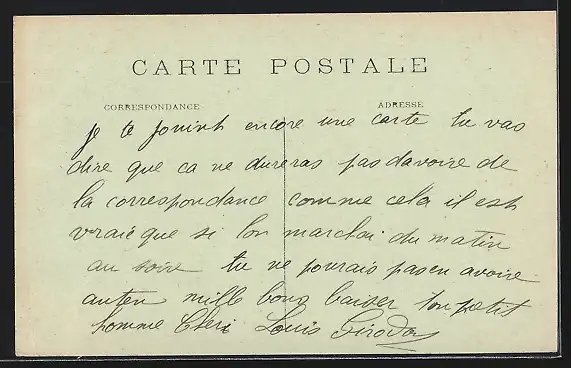 CARTE POSTALE
CORRESPONDANCE
ADRESSE
je te joinih encore une carte tu vas
dire que ca ne dureras pas davoire de
la correspondance comme cela il est
vraie que si lon marchai du matin
au soire tu ne pourais pas en avoire
auten mille bons baiser ton petit
homme Cheri Louis